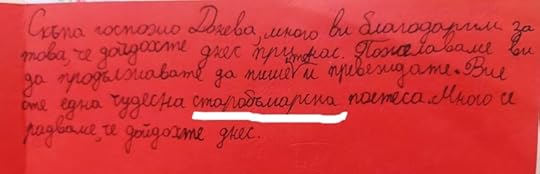 Скъпа госпожо много ви благодарим за
това, че дойдохте днес при нас. Пожелаваме ви
да продължавате да пишете и превеждате. Вие
сте една чудесна старобългарска поетеса. Много се
радваме, че дойдохте днес.